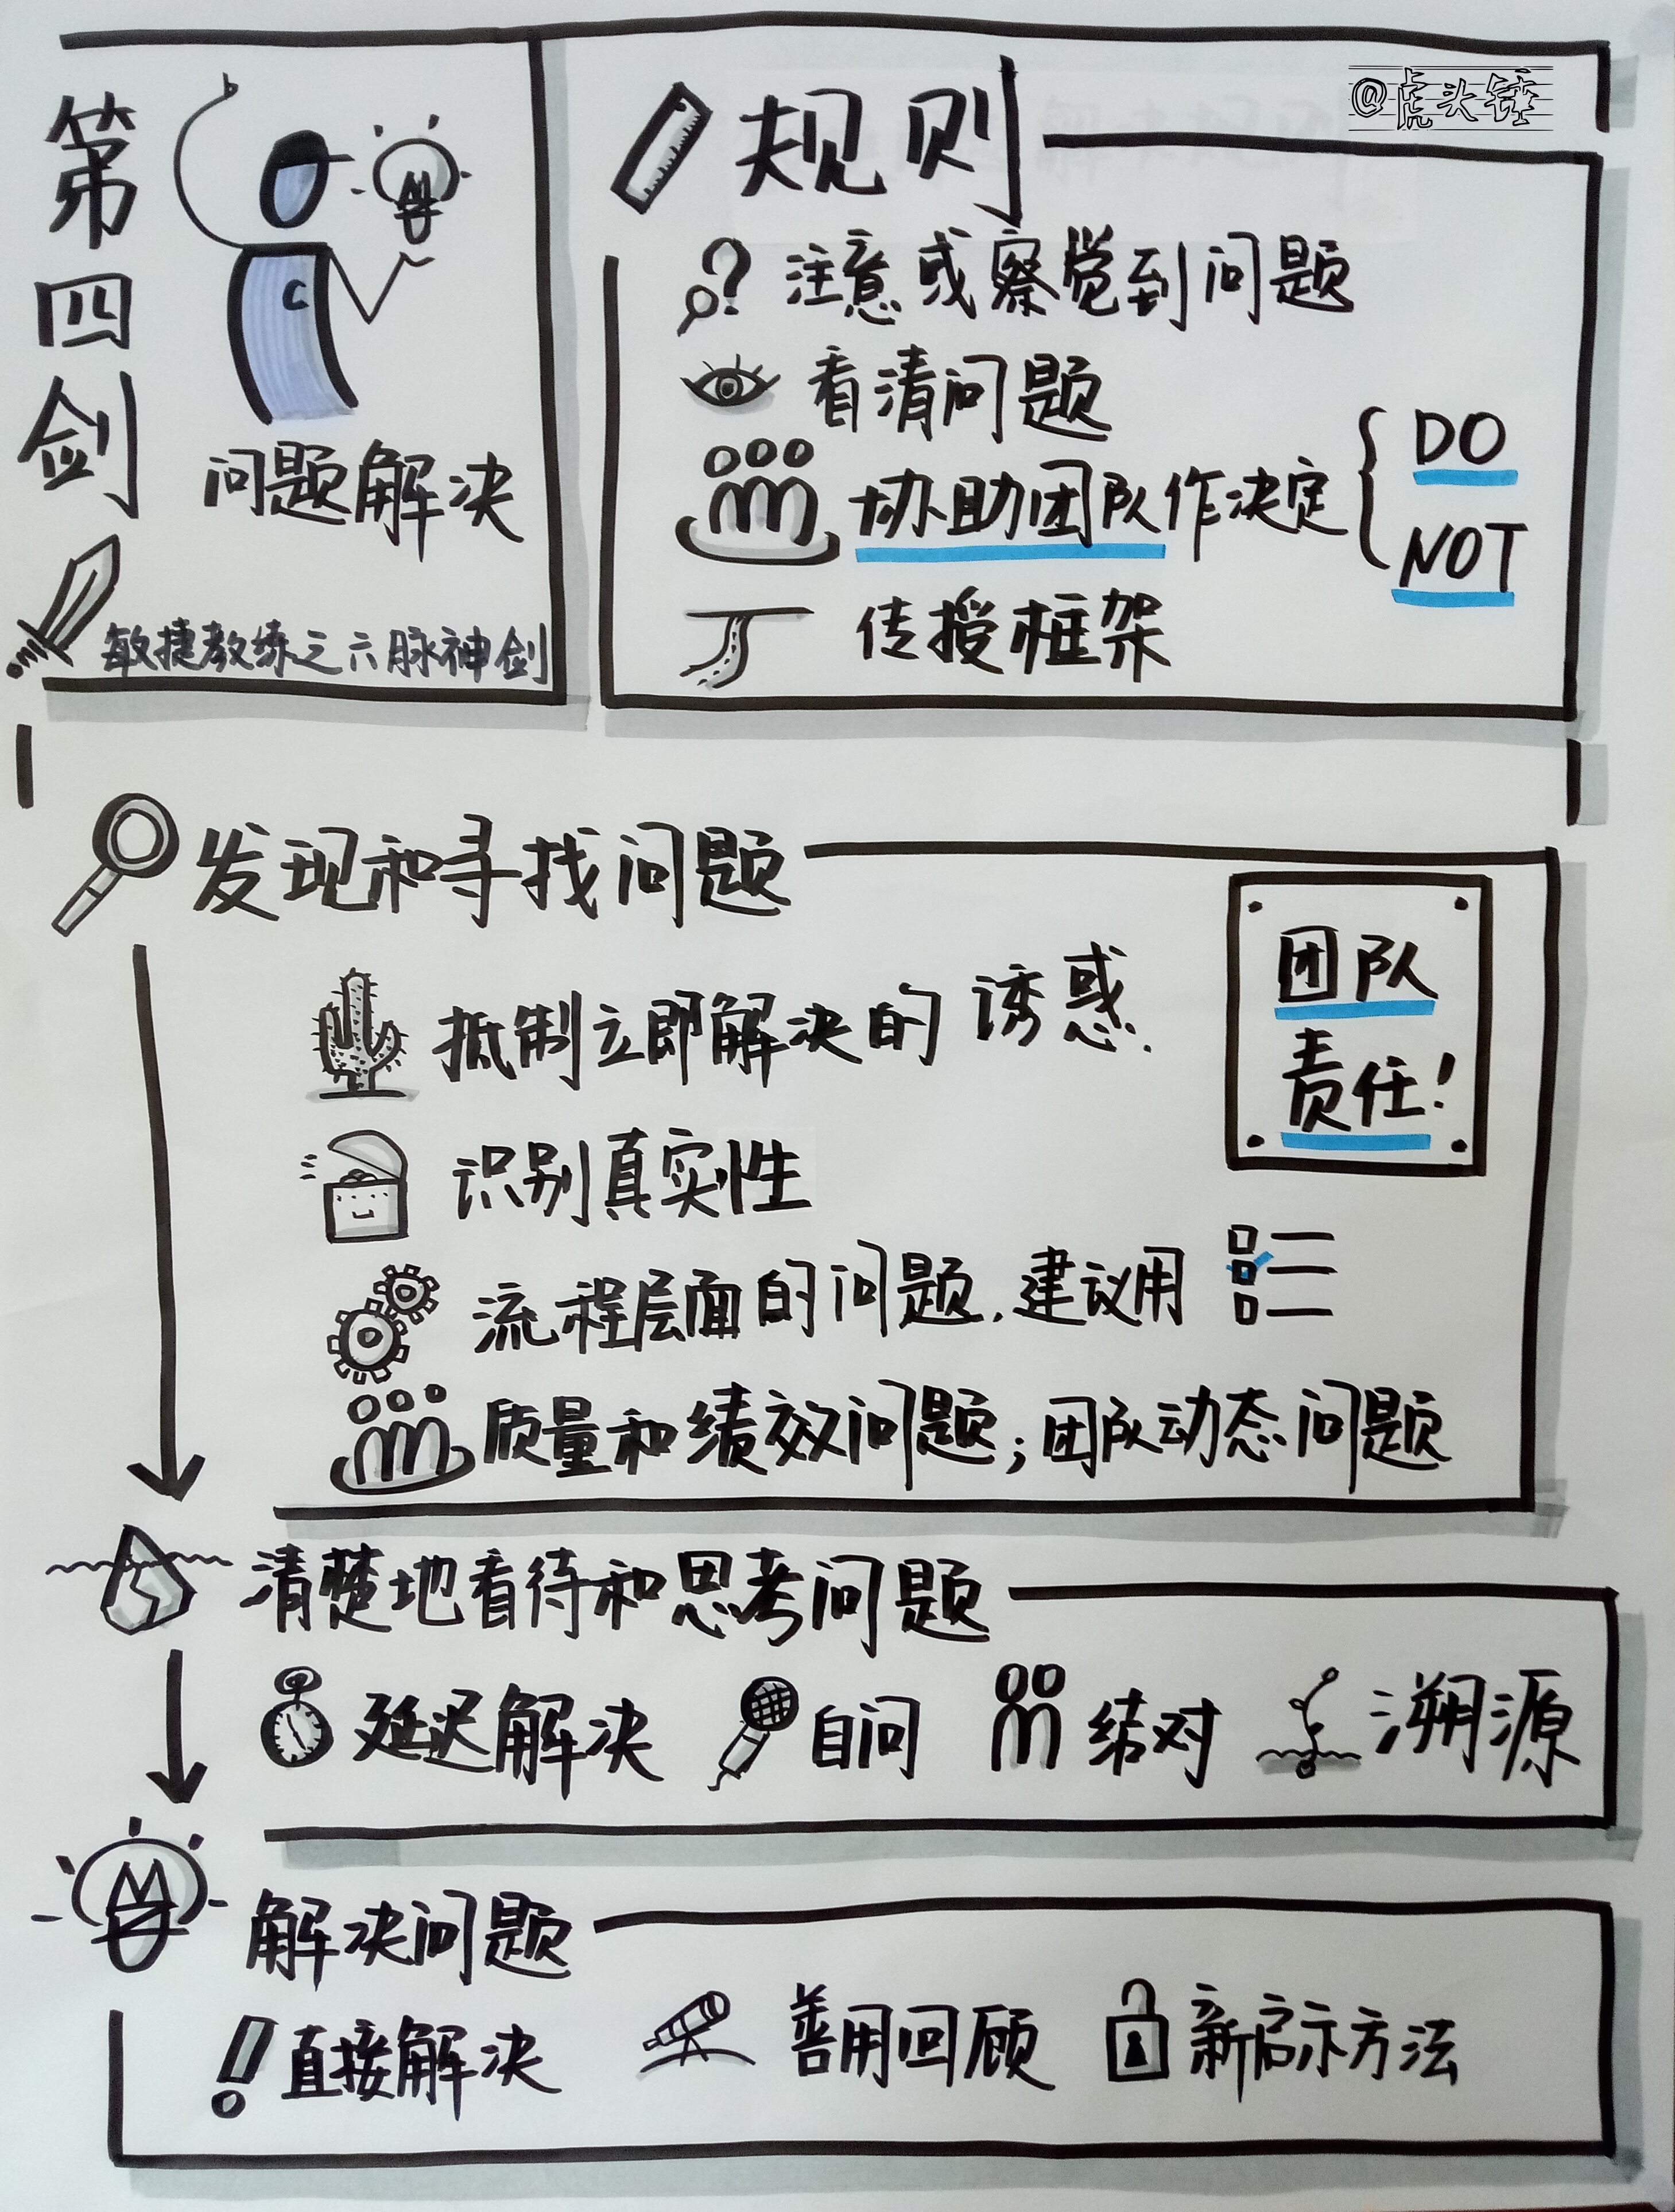 第四剑
C
问题解决
敏捷教练之六脉神剑
@虎头锤
规则
注意或察觉到问题
看清问题
协助团队作决定
DO
NOT
传授框架
发现和寻找问题
抵制立即解决的诱惑.
识别真实性
流程层面的问题.建议用
质量和绩效问题;团队动态问题
团队
责任!
清楚地看待和思考问题
延迟解决 自问 结对 溯源
解决问题
直接解决 善用回顾 新启示方法